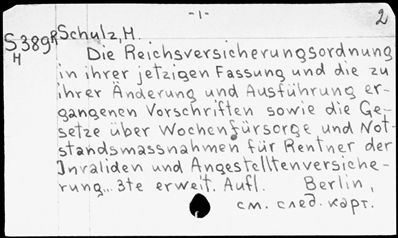 -1- 2
S389R Schulz, H.
H
Die Reichsversicherungsordnung
in ihrer jetzigen Fassung und die zu
ihrer Änderung und Ausführung er-
gangenen Vorschriften sowie die Ge-
setze über Wochenfürsorge und Not-
standsmassnahmen für Rentner der
Invaliden und Angestelltenversiche-
rung... 3te erweit. Aufl. Berlin,
см. след. карт.